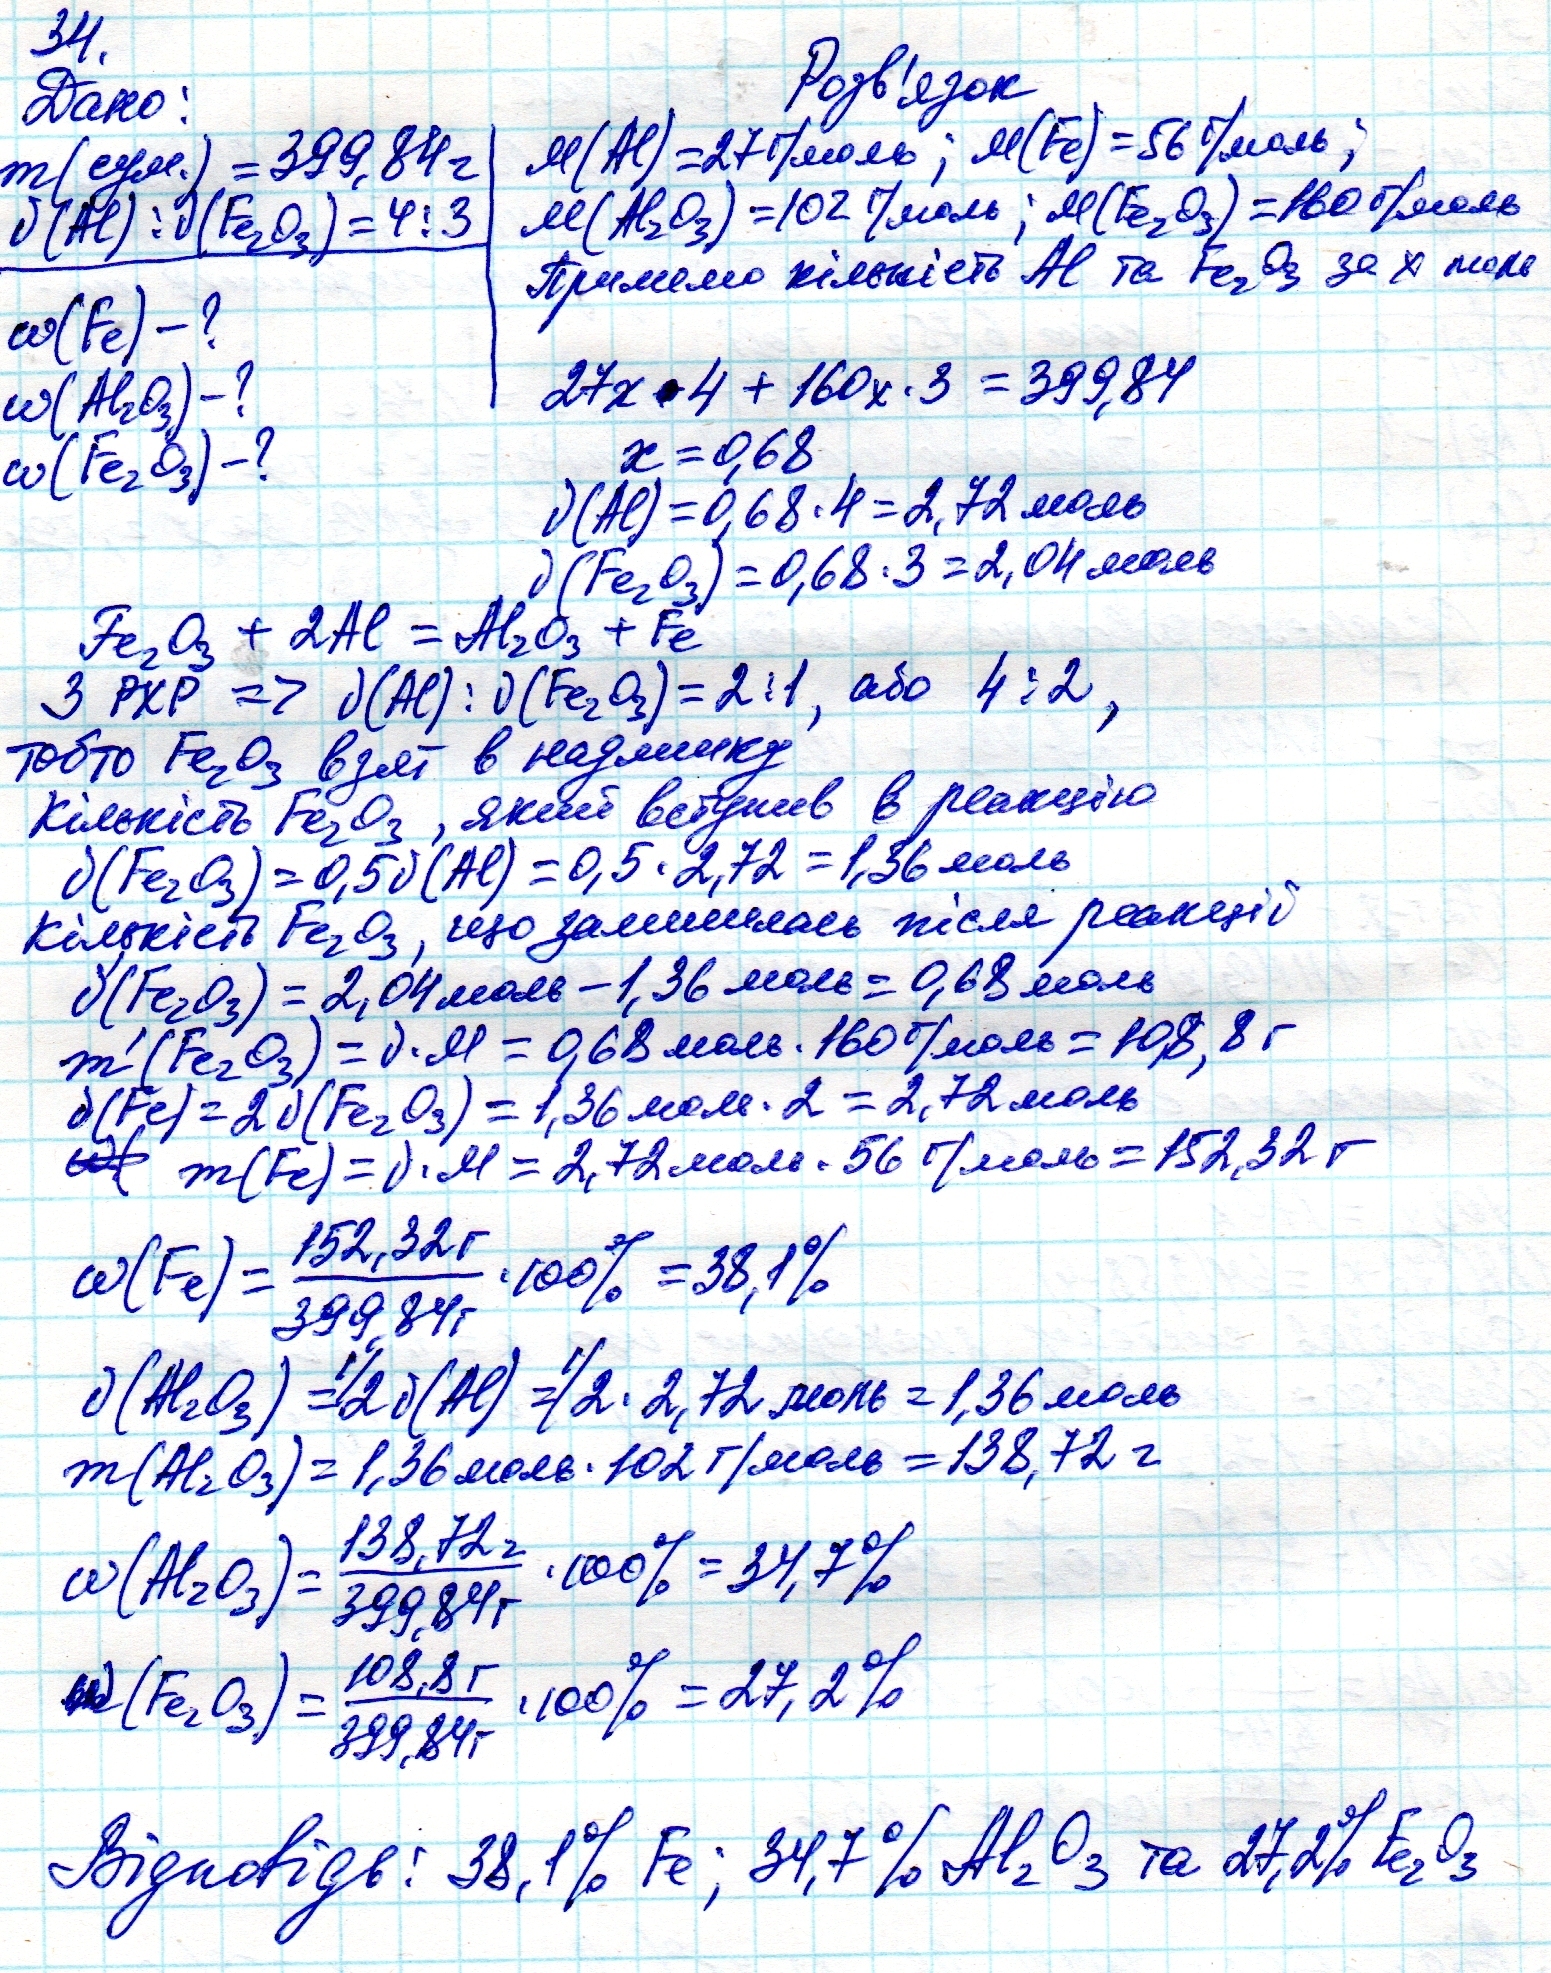 34.
Дано:
m(сум.) = 399,84 г
ν(Al) : ν(Fe₂O₃) = 4:3
ω(Fe) - ?
ω(Al₂O₃) - ?
ω(Fe₂O₃) - ?
Розв'язок
M(Al) = 27 г/моль; M(Fe) = 56 г/моль;
M(Al₂O₃) = 102 г/моль; M(Fe₂O₃) = 160 г/моль
Приймемо кількість Al та Fe₂O₃ за x моль
27x · 4 + 160x · 3 = 399,84
x = 0,68
ν(Al) = 0,68 · 4 = 2,72 моль
ν(Fe₂O₃) = 0,68 · 3 = 2,04 моль
Fe₂O₃ + 2Al = Al₂O₃ + Fe
З РХР => ν(Al) : ν(Fe₂O₃) = 2:1, або 4:2,
тобто Fe₂O₃ взят в надлишку
Кількість Fe₂O₃, який вступив в реакцію
ν(Fe₂O₃) = 0,5ν(Al) = 0,5 · 2,72 = 1,36 моль
Кількість Fe₂O₃, що залишилась після реакції
ν'(Fe₂O₃) = 2,04 моль - 1,36 моль = 0,68 моль
m'(Fe₂O₃) = ν · M = 0,68 моль · 160 г/моль = 108,8 г
ν(Fe) = 2ν(Fe₂O₃) = 1,36 моль · 2 = 2,72 моль
m(Fe) = ν · M = 2,72 моль · 56 г/моль = 152,32 г
ω(Fe) = 152,32 г / 399,84 г · 100% = 38,1%
ν(Al₂O₃) = 1/2 ν(Al) = 1/2 · 2,72 моль = 1,36 моль
m(Al₂O₃) = 1,36 моль · 102 г/моль = 138,72 г
ω(Al₂O₃) = 138,72 г / 399,84 г · 100% = 34,7%
ω(Fe₂O₃) = 108,8 г / 399,84 г · 100% = 27,2%
Відповідь: 38,1% Fe; 34,7% Al₂O₃ та 27,2% Fe₂O₃